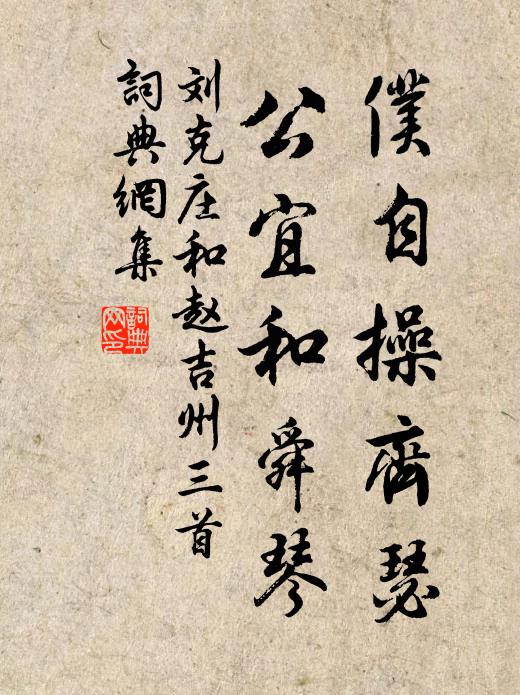 僕自操齊瑟
公宜和舜琴
刘克庄和赵吉州三首
詞典網集
詞典網印